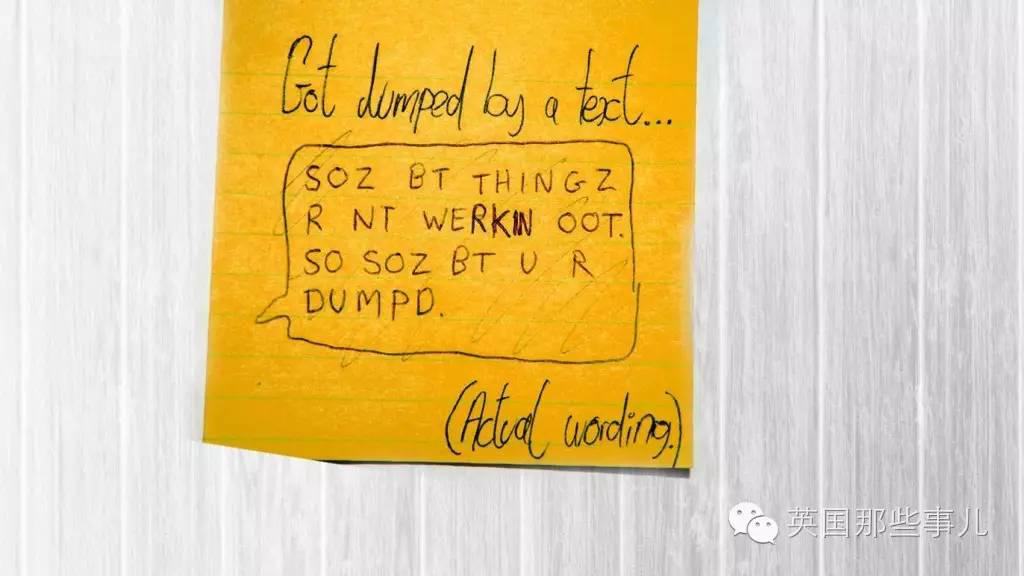 Got dumped by a text...
SOZ BT THINGZ
R NT WERKIN OOT.
SO SOZ BT U R
DUMPD.
(Actual wording.)
英国那些事儿